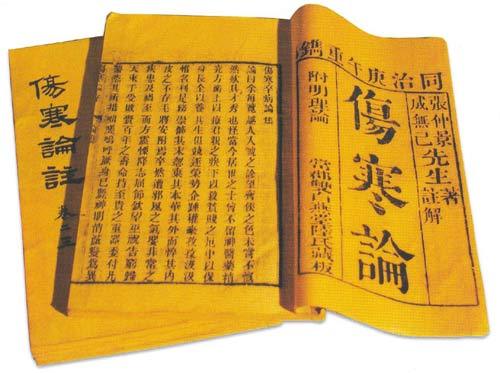 同治庚午重鐫
張仲景
成無己
先生
著
註解
傷寒論
附明理論
常郡雙白燕堂陸氏藏板
傷寒卒病論集
論曰余每覽越人入虢之診望齊侯之色未嘗不慨
然歎其才秀也怪當今居世之士曾不留神醫藥精
究方術上以療君親之疾下以救貧賤之厄中以保
身長全以養其生但競逐榮勢企踵權豪孜孜汲汲
惟名利是務崇飾其末忽棄其本華其外而悴其內
皮之不存毛將安附焉卒然遭邪風之氣嬰非常之
疾患及禍至而方震慄降志屈節欽望巫祝告窮歸
天束手受敗賚百年之壽命持至貴之重器委付凡
醫恣其所措咄嗟嗚呼厥身已斃神明消滅變為異
傷寒論註
卷二三